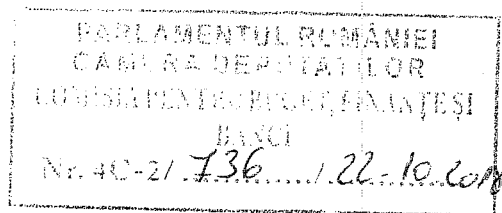 PARLAMENTUL ROMÂNIEI
CAMERA DEPUTAȚILOR
COMISIA PENTRU BUGET, FINANȚE ȘI
BĂNCI
Nr. 4C-2/ 736 / 22-10.2018